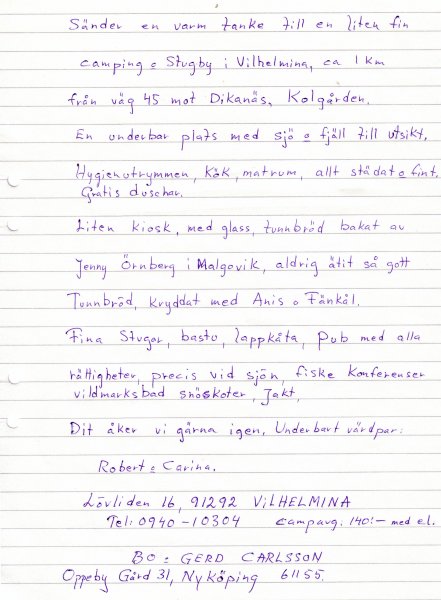 Sänder en varm tanke till en liten fin
camping o Stugby i Vilhelmina, ca 1 km
från väg 45 mot Dikanäs, Kolgården.
En underbar plats med sjö o fjäll till utsikt.
Hygienutrymmen, kök, matrum, allt städat o fint.
Gratis duschar.
Liten kiosk, med glass, tunnbröd bakat av
Jenny Örnberg i Malgovik, aldrig ätit så gott
Tunnbröd, kryddat med Anis o Fänkål.
Fina Stugor, bastu, lappkåta, Pub med alla
rättigheter, precis vid sjön, fiske Konferenser
vildmarksbad snöskoter, Jakt,
Dit åker vi gärna igen, Underbart värdpar:
Robert o Carina.
Lövliden 16, 91292 VILHELMINA
Tel: 0940-10304 campavg. 140:- med el.
BO o GERD CARLSSON
Oppeby Gård 31, Nyköping 61155.